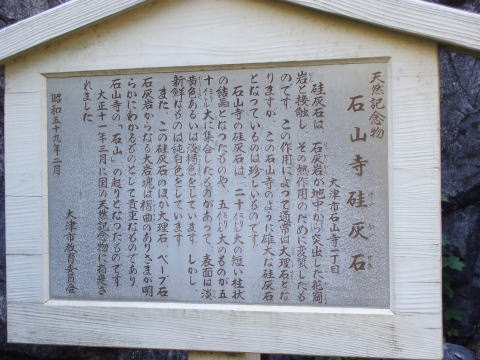 天然記念物
石山寺硅灰石
けいかいせき
大津市石山寺一丁目
硅灰石は、石灰岩が地中から突出した花崗
岩と接触し、その熱作用のために変質したも
のです。この作用によって通常は大理石とな
りますが、この石山寺のように雄大な硅灰石
となっているのは珍しいものです。
石山寺の硅灰石は、二十ミリ大の短い柱状
の結晶となったものや、五ミリ大のものが五
十ミリ大に集合したものがあって、表面は淡
黄色あるいは淡褐色をしています。しかし、
新鮮なものは純白色をしています。
また、この硅灰石のほか大理石、ベーブ石
石灰岩からなる大岩塊は褶曲のありさまが明
らかにわかるものとして貴重なものであり
石山寺の「石山」の起りとなったものです。
大正十一年三月に国の天然記念物に指定さ
れました。
昭和五十九年二月
大津市教育委員会